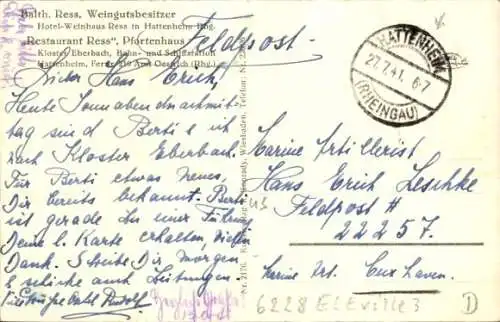 Balth. Ress, Weingutsbesitzer
Hotel-Weinhaus Ress in Hattenheim Rhg.
"Restaurant Ress", Pfortenhaus
Kloster Eberbach, Bahn- und Schiffstation
Hattenheim, Fernr. 210 Amt Oestrich (Rhg.)
Feldpost
HATTENHEIM
27.7.41. 6-7
(RHEINGAU)
Lieber Hans Erich,
Heute Sonnabendnachmit-
tag sind Berti & ich
nach Kloster Eberbach.
Für Berti etwas neues,
Dir bereits bekannt. Berti
ist gerade zu einer Führung
Deine l. Karte erhalten, vielen
Dank. Schreibe Dir morgen
& schicke auch Zeitungen.
Rudolf
Marine Artillerist
Hans Erich Leschke
Feldpost #
22257.
Marine Art. Cuxhaven.
6228 Eltville 3
D